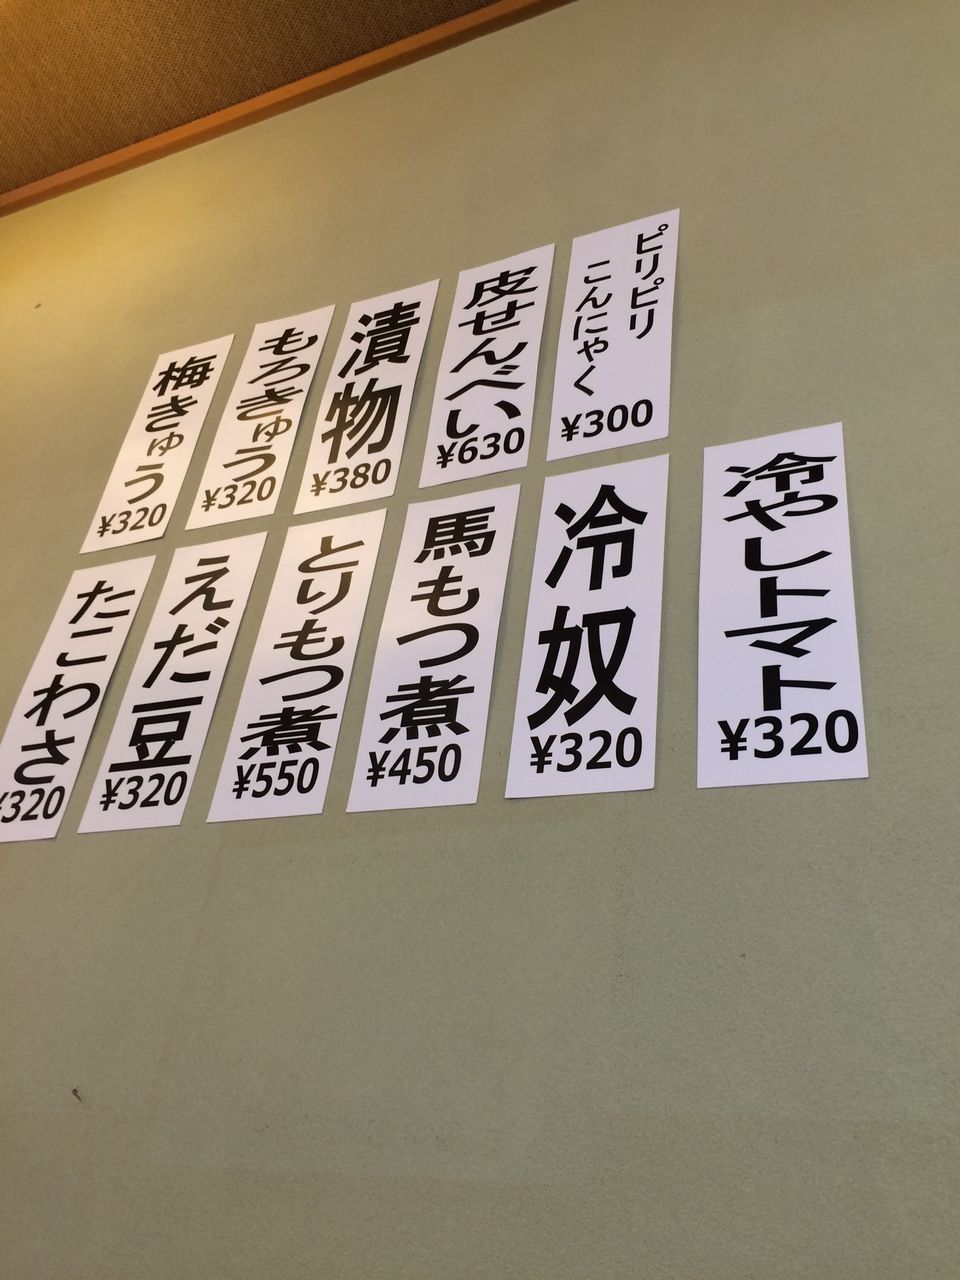 ピリピリ
こんにゃく
¥300
皮せんべい
¥630
漬物
¥380
もろきゅう
¥320
梅きゅう
¥320
冷やしトマト
¥320
冷奴
¥320
馬もつ煮
¥450
とりもつ煮
¥550
えだ豆
¥320
たこわさ
¥320